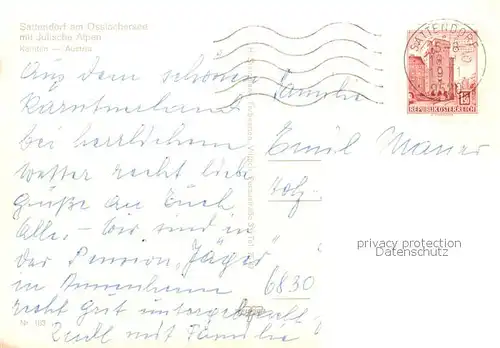 Sattendorf am Ossiachersee
mit Julische Alpen
Kärnten — Austria
Auf dem schönen
Kärntnerland
bei herrlichem
Wetter recht liebe
Grüße an Euch
Alle. - Wir sind in
der Pension „Jäger"
in Annenheim
recht gut untergebracht
Zudl mit Familie
Nr. 103
Familie
Emil Maner
Holz.
6830
SATTENDORF
REPUBLIK ÖSTERREICH
privacy protection
Datenschutz